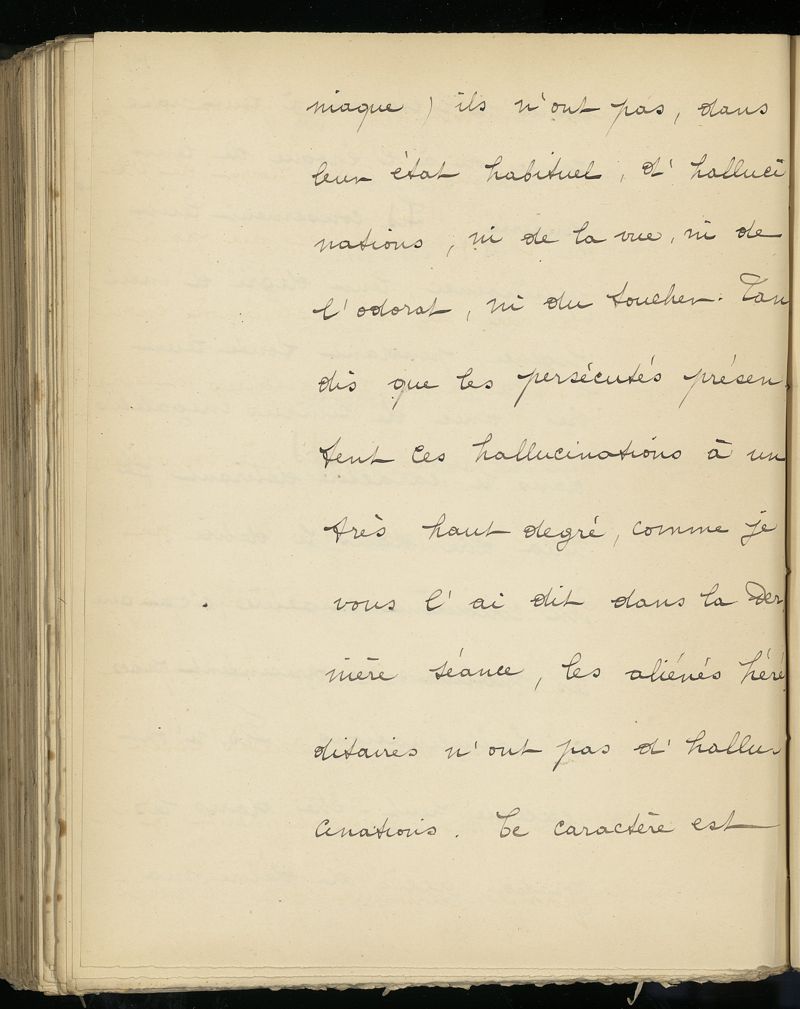 niaque) ils n'ont pas, dans
leur état habituel, d'halluci
nations, ni de la vue, ni de
l'odorat, ni du toucher. Tan
dis que les persécutés présen
tent ces hallucinations à un
très haut degré, comme je
vous l'ai dit dans la der
nière séance, les aliénés héré
ditaires n'ont pas d'hallu
cinations. Ce caractère est